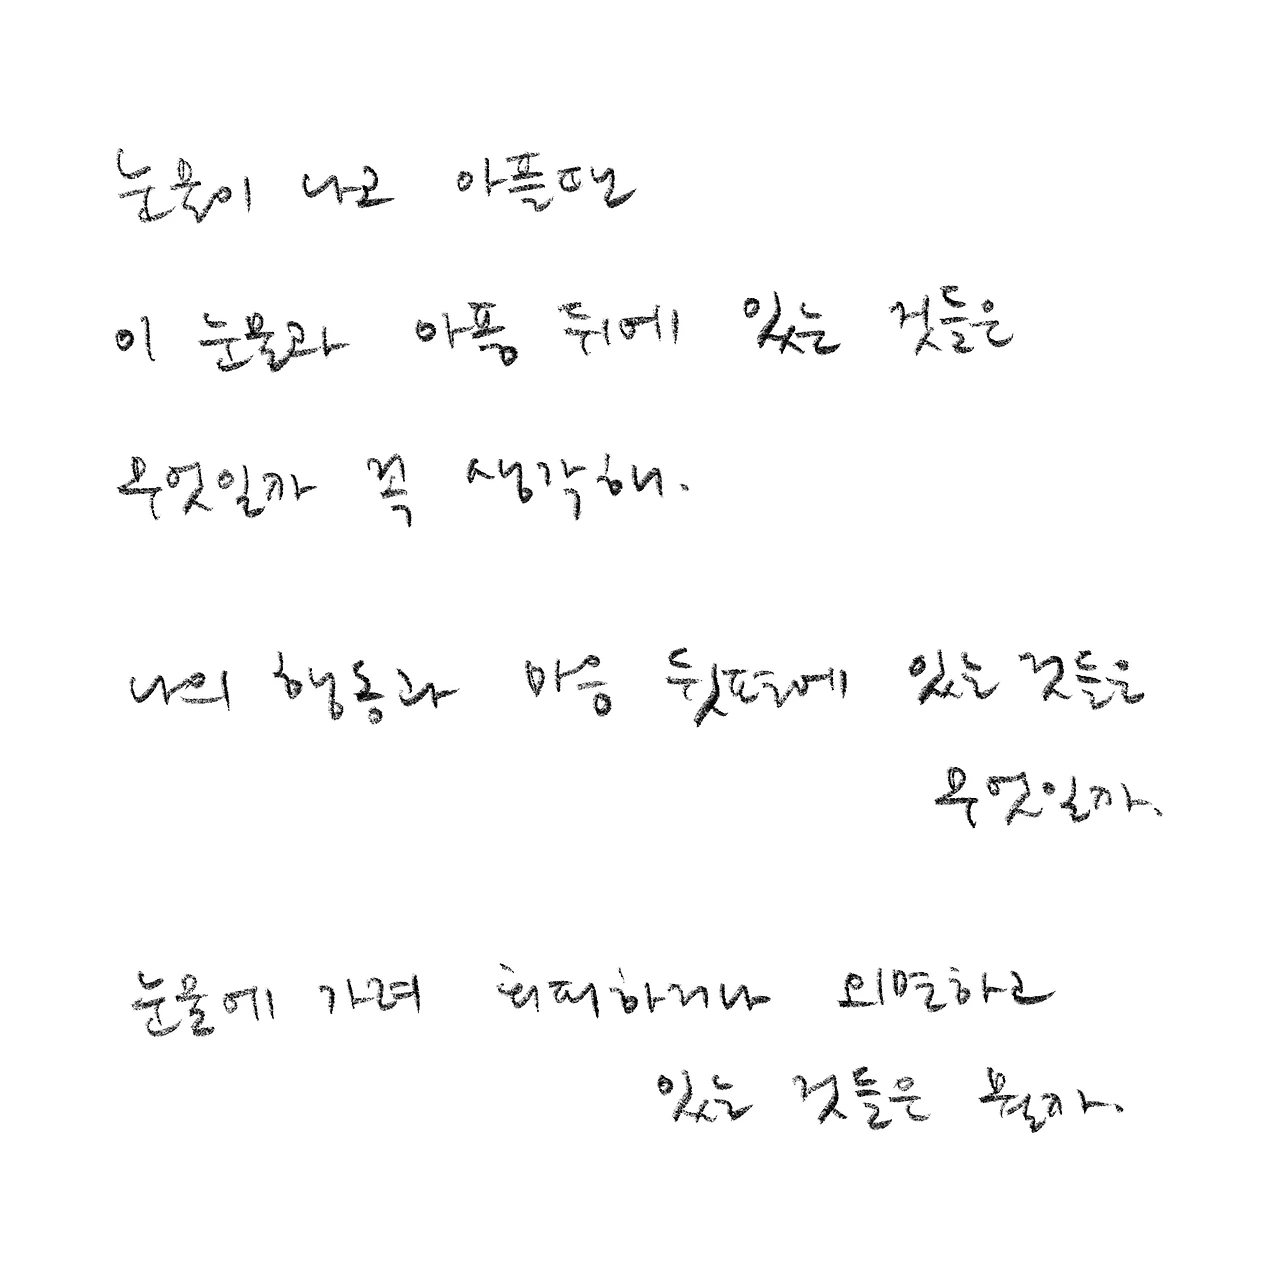 눈물이 나고 아플땐
이 눈물과 아픔 뒤에 있는 것들은
무엇일까 꼭 생각해.
나의 행동과 마음 뒷편에 있는 것들은
무엇일까.
눈물에 가려 회피하거나 외면하고
있는 것들은 뭘까.